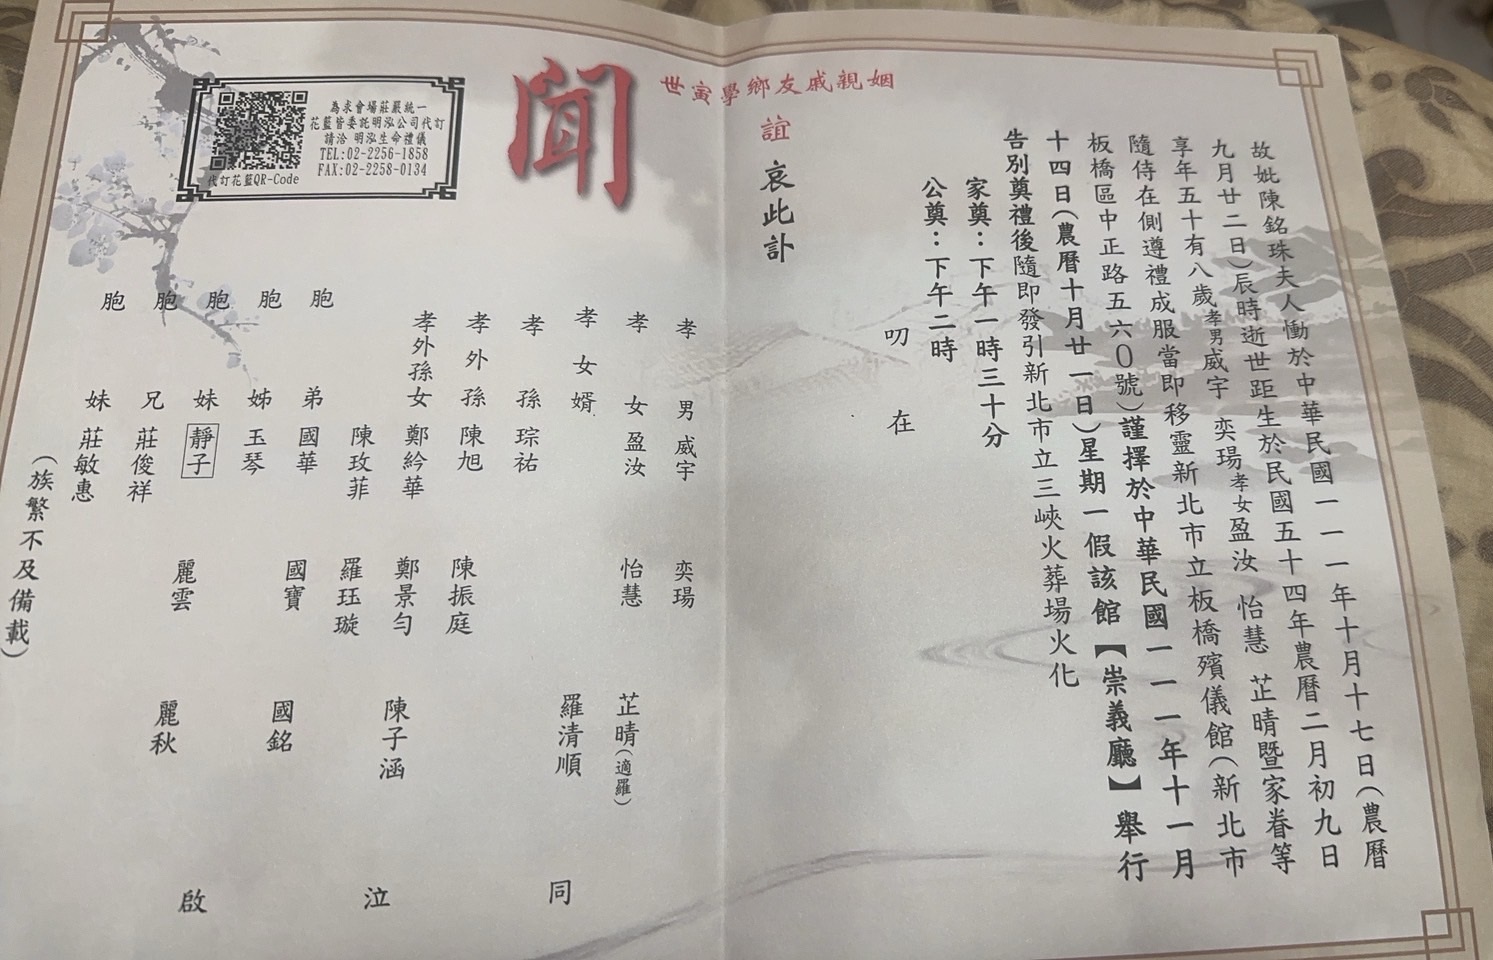 故妣陳銘珠夫人慟於中華民國一一一年十月十七日(農曆
九月廿二日)辰時逝世距生於民國五十四年農曆二月初九日
享年五十有八歲孝男威宇 奕瑒孝女盈汝 怡慧 芷晴暨家眷等
隨侍在側遵禮成服當即移靈新北市立板橋殯儀館(新北市
板橋區中正路五六0號)謹擇於中華民國一一一年十一月
十四日(農曆十月廿一日)星期一假該館【崇義廳】舉行
告別奠禮後隨即發引新北市立三峽火葬場火化
家奠:下午一時三十分
公奠:下午二時
叨 在
姻親戚友鄉學寅世
誼 哀此訃
聞
孝 男 威宇 奕瑒
孝 女 盈汝 怡慧 芷晴(適羅)
孝 女 婿 羅清順
孝 孫 琮祐
孝 外 孫 陳旭 陳振庭
孝外孫女 鄭紟華 鄭景勻 陳子涵
陳玫菲 羅珏璇
胞 弟 國華 國寶 國銘
胞 姊 玉琴
胞 妹 靜子 麗雲 麗秋
胞 兄 莊俊祥
胞 妹 莊敏惠
(族繁不及備載)
同 泣 啟
為求會場莊嚴統一
花籃皆委託明泓公司代訂
請洽 明泓生命禮儀
TEL:02-2256-1858
FAX:02-2258-0134
代訂花籃QR-Code